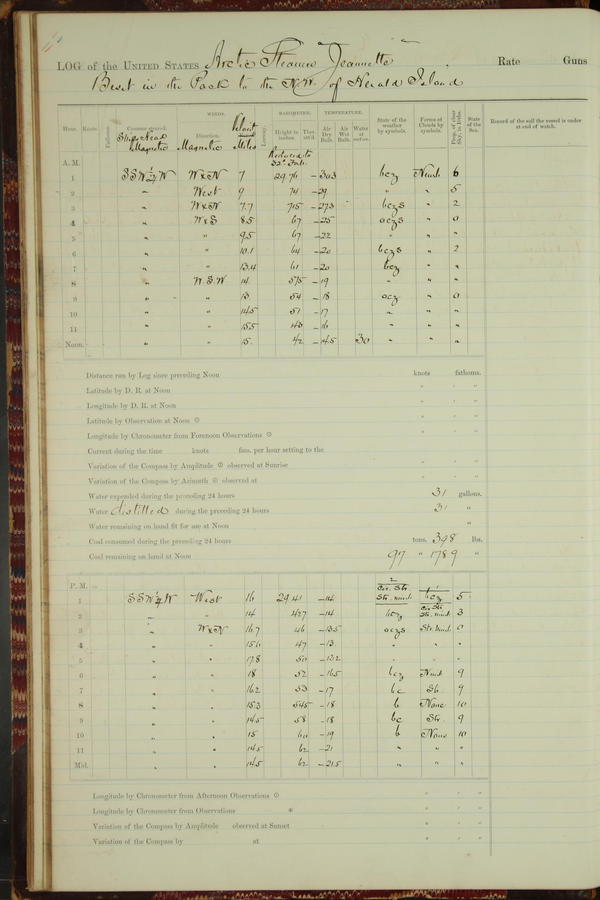 LOG of the UNITED STATES Arctic Steamer "Jeannette" Rate Guns
Beset in the Pack to the N.W. of Herald Island
WINDS. BAROMETER. TEMPERATURE.
Hour. Knots. Fathoms. Courses steered. Direction. Leeway. Height in inches. Ther. att'd. Air Dry Bulb. Air Wet Bulb. Water at surface. State of the weather by symbols. Forms of Clouds by symbols. Prop. of clear Sky, in 10ths. State of the Sea. Record of the sail the vessel is under at end of watch.
Ship's Head Magnetic Magnetic Velocity Miles Reduced to 32° Fah.
A. M.
1 SSW½W WxN 7 29.76 -30.3 bcz Nimb 6
2 " West 9 74 -29 " " 5
3 " WxN 7.7 715 -27.3 bczs " 2
4 " WxS 8.5 67 -25 oczs " 0
5 " " 9.5 67 -22 " " "
6 " " 10.1 64 -20 bczs " 2
7 " " 13.4 61 -20 bcz " "
8 " W.S.W 14 575 -19 " " "
9 " " 13 54 -18 ocz " 0
10 " " 14.5 51 -17 " " "
11 " " 15.5 -16 " " "
Noon. " " 15. 42 -14.5 30 " " "
Distance run by Log since preceding Noon knots fathoms.
Latitude by D. R. at Noon ° ′ ″
Longitude by D. R. at Noon ° ′ ″
Latitude by Observation at Noon ☉ ° ′ ″
Longitude by Chronometer from Forenoon Observations ☉ ° ′ ″
Current during the time knots fms. per hour setting to the
Variation of the Compass by Amplitude ☉ observed at Sunrise ° ′ ″
Variation of the Compass by Azimuth ☉ observed at ° ′ ″
Water expended during the preceding 24 hours 31 gallons.
Water distilled during the preceding 24 hours 31 "
Water remaining on hand fit for use at Noon "
Coal consumed during the preceding 24 hours tons. 398 lbs.
Coal remaining on hand at Noon 97 " 1789 "
P. M.
2 1
1 SSW¼W West 16 29.41 -14 Cir. Str. Str. Nimb bcz 5
2 " " 14 427 -14 bcz Cir. Str. Str. Nimb 3
3 " WxN 16.7 46 -13.5 oczs Str. Nimb 0
4 " " 15.6 47 -13 " " "
5 " " 17.8 50 -13.2 " " "
6 " " 18 52 -16.5 bcz Nimb 9
7 " " 16.2 53 -17 bc Str. 9
8 " " 15.3 545 -18 b None 10
9 " " 14.5 58 -18 bc Str. 9
10 " " 15 60 -19 b None 10
11 " " 14.5 62 -21 " " "
Mid. " " 14.5 62 -21.5 " " "
Longitude by Chronometer from Afternoon Observations ☉ ° ′ ″
Longitude by Chronometer from Observations * ° ′ ″
Variation of the Compass by Amplitude observed at Sunset ° ′ ″
Variation of the Compass by at ° ′ ″